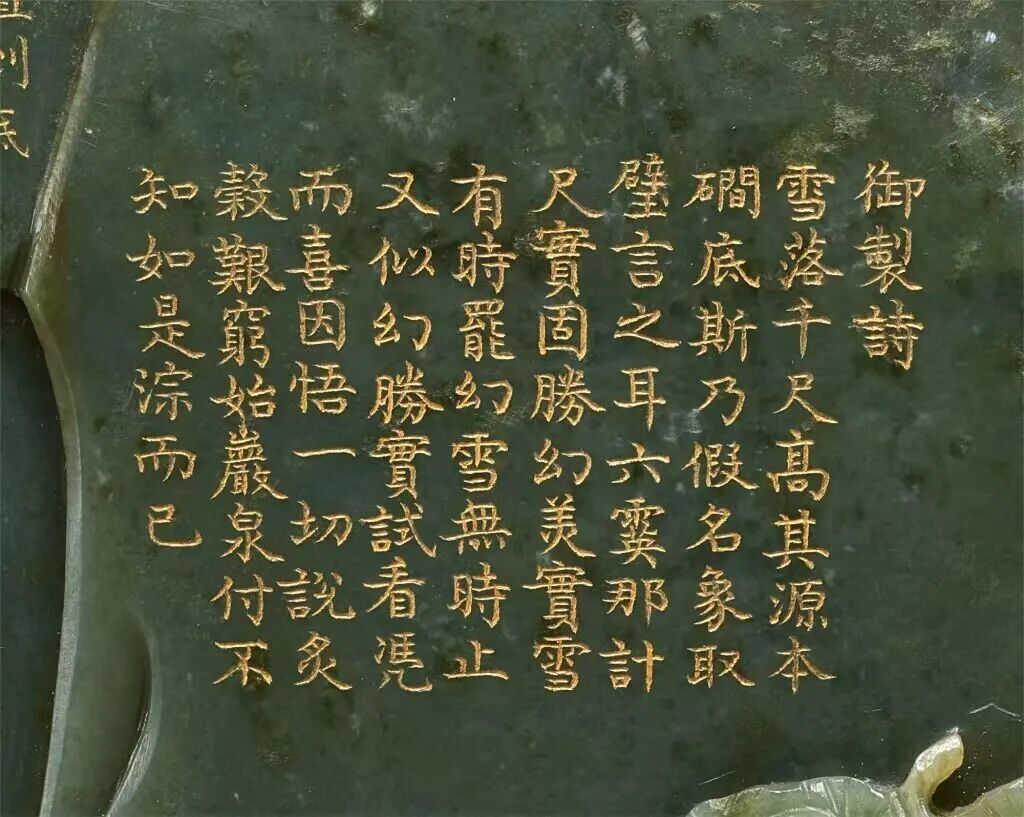 御製詩
雪落千尺高其源本
磵底斯乃假名象取
璧言之耳六霙那計
尺實固勝幻美實雪
有時罷幻雪無時止
又似幻勝實試看凴
而喜因悟一切說炙
轂艱窮始巖泉付不
知如是淙而已